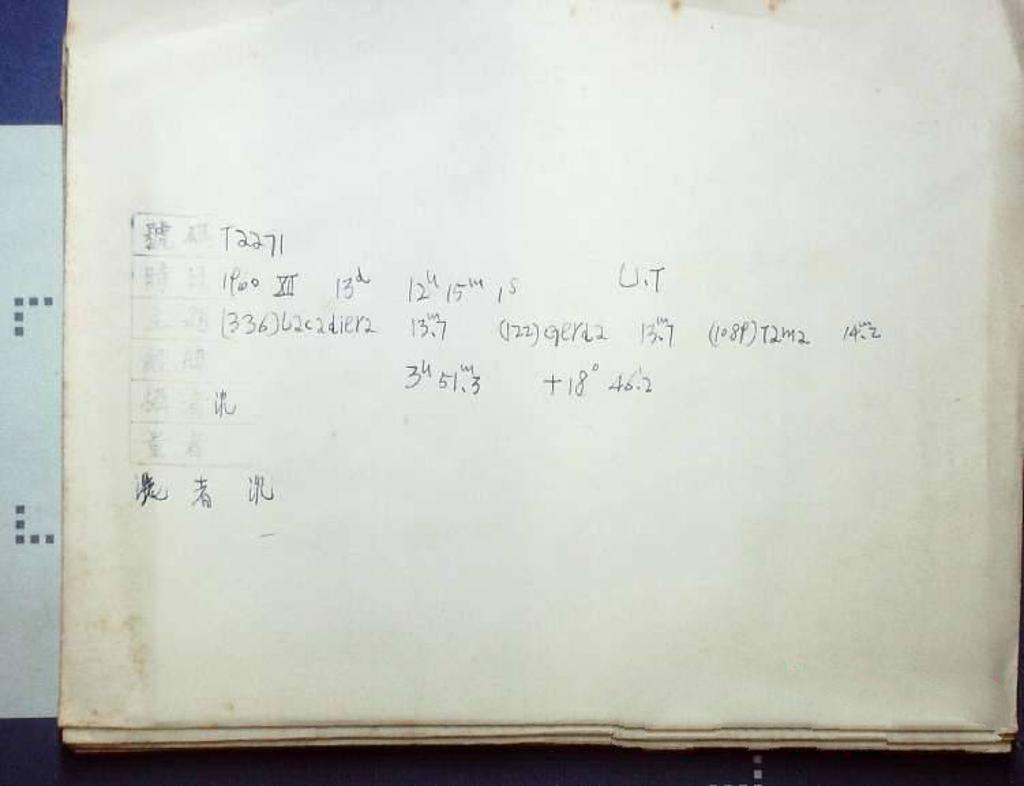 號碼 T2271
時日 1960 XII 13d 12h 15m 1s U.T
主題 (336)Lacadiera 13m.7 (122)gerda 13m.7 (1089)Tama 14m.2
3h 51m.3 +18° 46'.2
攝者 沈
量者
洗者 沈